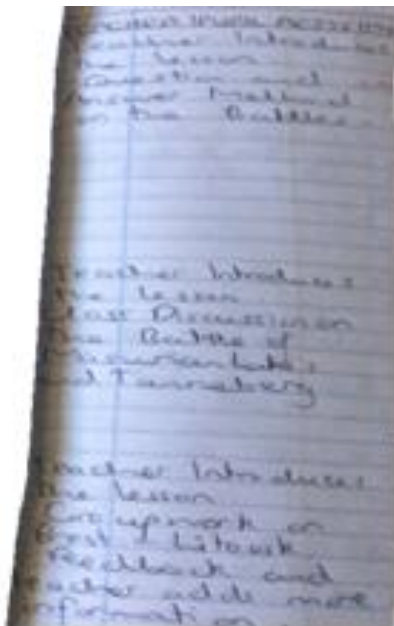 Teacher Introduces
the lesson
Question and
Answer Method
on the Battles.
Teacher Introduces
the lesson
Class Discussion on
The Battle of
Masurian Lakes
and Tanneberg
Teacher Introduces
the lesson
Groupwork on
Brest Litovsk
Feedback and
teacher adds more
information